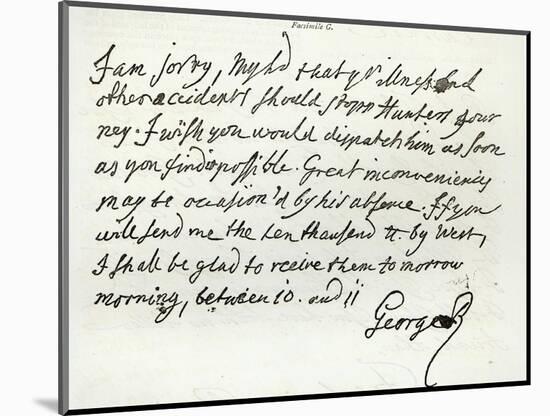 Facsimile G.
I am sorry, My Ld that yr Illness and
other accidents should stopp Hunters jour
ney. I wish you would dispatch him as soon
as you find possible. Great inconveniencies
may be occasion'd by his absence. If you
will send me the ten thousend tt. by West,
I shall be glad to receive them to morrow
morning, between 10. and 11
George R